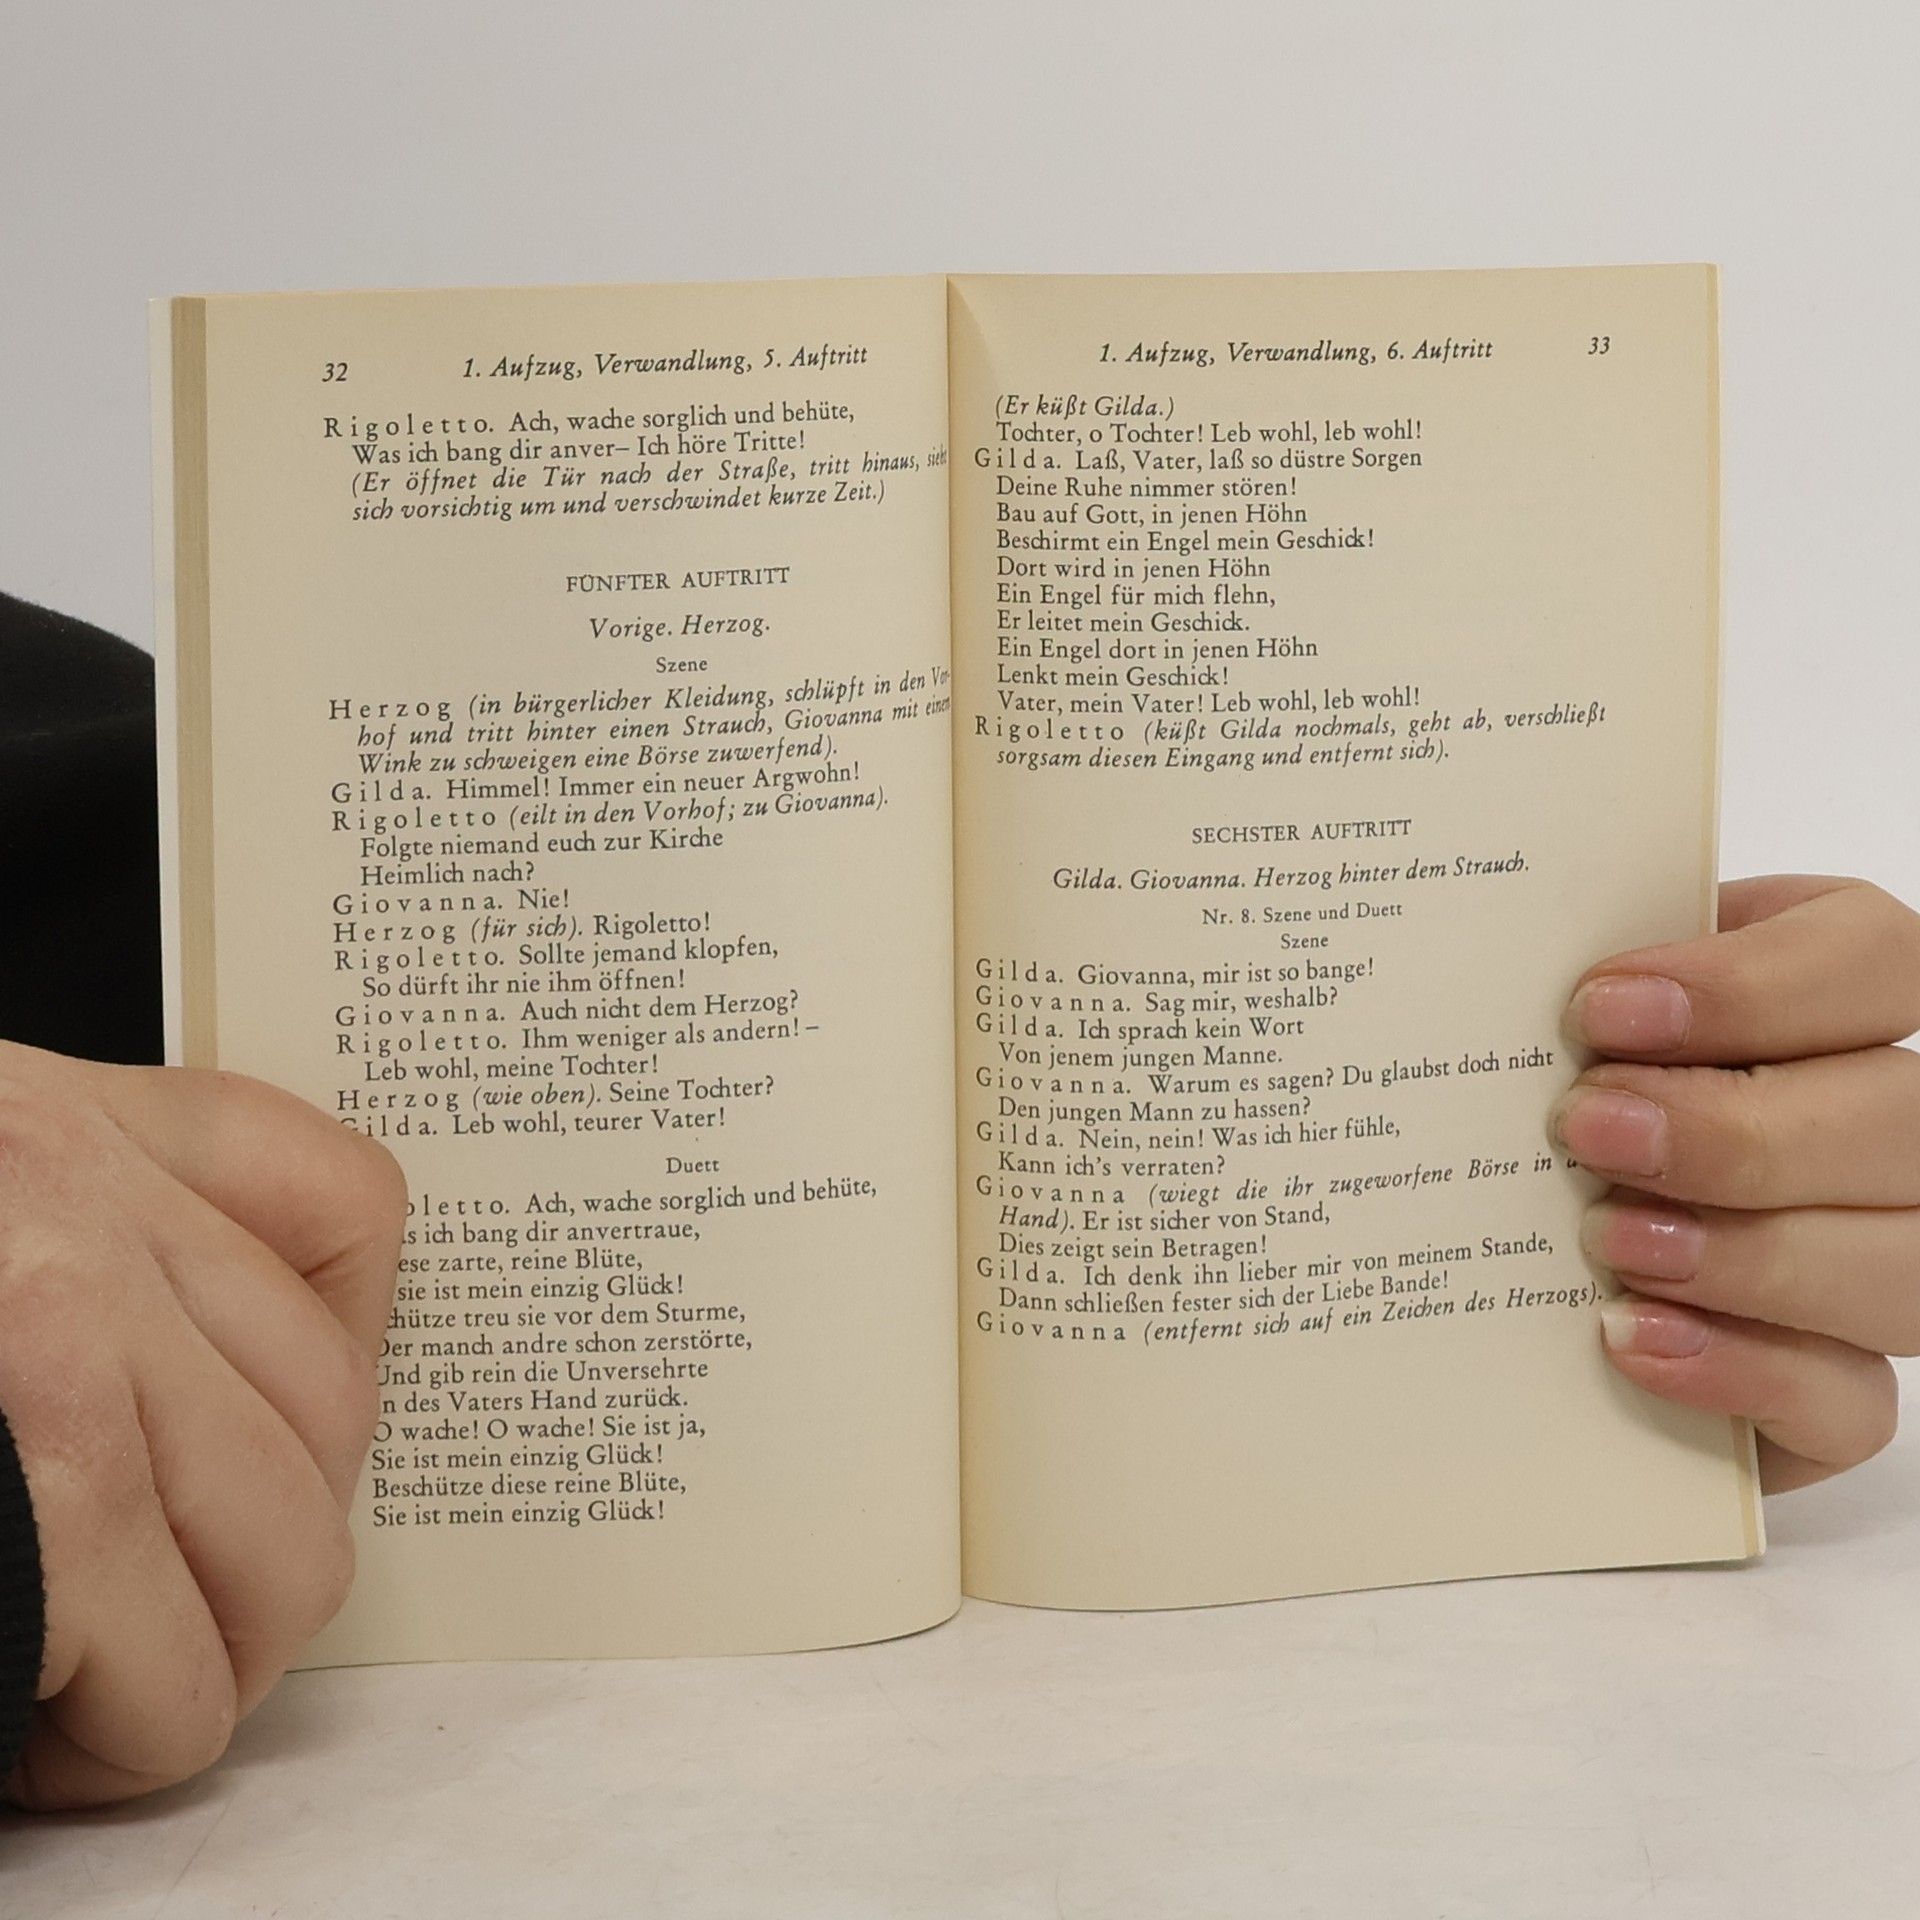 32 1. Aufzug, Verwandlung, 5. Auftritt
Rigoletto. Ach, wache sorglich und behüte,
Was ich bang dir anver– Ich höre Tritte!
(Er öffnet die Tür nach der Straße, tritt hinaus, sieht
sich vorsichtig um und verschwindet kurze Zeit.)
FÜNFTER AUFTRITT
Vorige. Herzog.
Szene
Herzog (in bürgerlicher Kleidung, schlüpft in den Vor-
hof und tritt hinter einen Strauch, Giovanna mit einem
Wink zu schweigen eine Börse zuwerfend).
Gilda. Himmel! Immer ein neuer Argwohn!
Rigoletto (eilt in den Vorhof; zu Giovanna).
Folgte niemand euch zur Kirche
Heimlich nach?
Giovanna. Nie!
Herzog (für sich). Rigoletto!
Rigoletto. Sollte jemand klopfen,
So dürft ihr nie ihm öffnen!
Giovanna. Auch nicht dem Herzog?
Rigoletto. Ihm weniger als andern! –
Leb wohl, meine Tochter!
Herzog (wie oben). Seine Tochter?
Gilda. Leb wohl, teurer Vater!
Duett
oletto. Ach, wache sorglich und behüte,
s ich bang dir anvertraue,
ese zarte, reine Blüte,
sie ist mein einzig Glück!
chütze treu sie vor dem Sturme,
Der manch andre schon zerstörte,
Und gib rein die Unversehrte
n des Vaters Hand zurück.
O wache! O wache! Sie ist ja,
Sie ist mein einzig Glück!
Beschütze diese reine Blüte,
Sie ist mein einzig Glück!
1. Aufzug, Verwandlung, 6. Auftritt 33
(Er küßt Gilda.)
Tochter, o Tochter! Leb wohl, leb wohl!
Gilda. Laß, Vater, laß so düstre Sorgen
Deine Ruhe nimmer stören!
Bau auf Gott, in jenen Höhn
Beschirmt ein Engel mein Geschick!
Dort wird in jenen Höhn
Ein Engel für mich flehn,
Er leitet mein Geschick.
Ein Engel dort in jenen Höhn
Lenkt mein Geschick!
Vater, mein Vater! Leb wohl, leb wohl!
Rigoletto (küßt Gilda nochmals, geht ab, verschließt
sorgsam diesen Eingang und entfernt sich).
SECHSTER AUFTRITT
Gilda. Giovanna. Herzog hinter dem Strauch.
Nr. 8. Szene und Duett
Szene
Gilda. Giovanna, mir ist so bange!
Giovanna. Sag mir, weshalb?
Gilda. Ich sprach kein Wort
Von jenem jungen Manne.
Giovanna. Warum es sagen? Du glaubst doch nicht
Den jungen Mann zu hassen?
Gilda. Nein, nein! Was ich hier fühle,
Kann ich's verraten?
Giovanna (wiegt die ihr zugeworfene Börse in
Hand). Er ist sicher von Stand,
Dies zeigt sein Betragen!
Gilda. Ich denk ihn lieber mir von meinem Stande,
Dann schließen fester sich der Liebe Bande!
Giovanna (entfernt sich auf ein Zeichen des Herzogs).